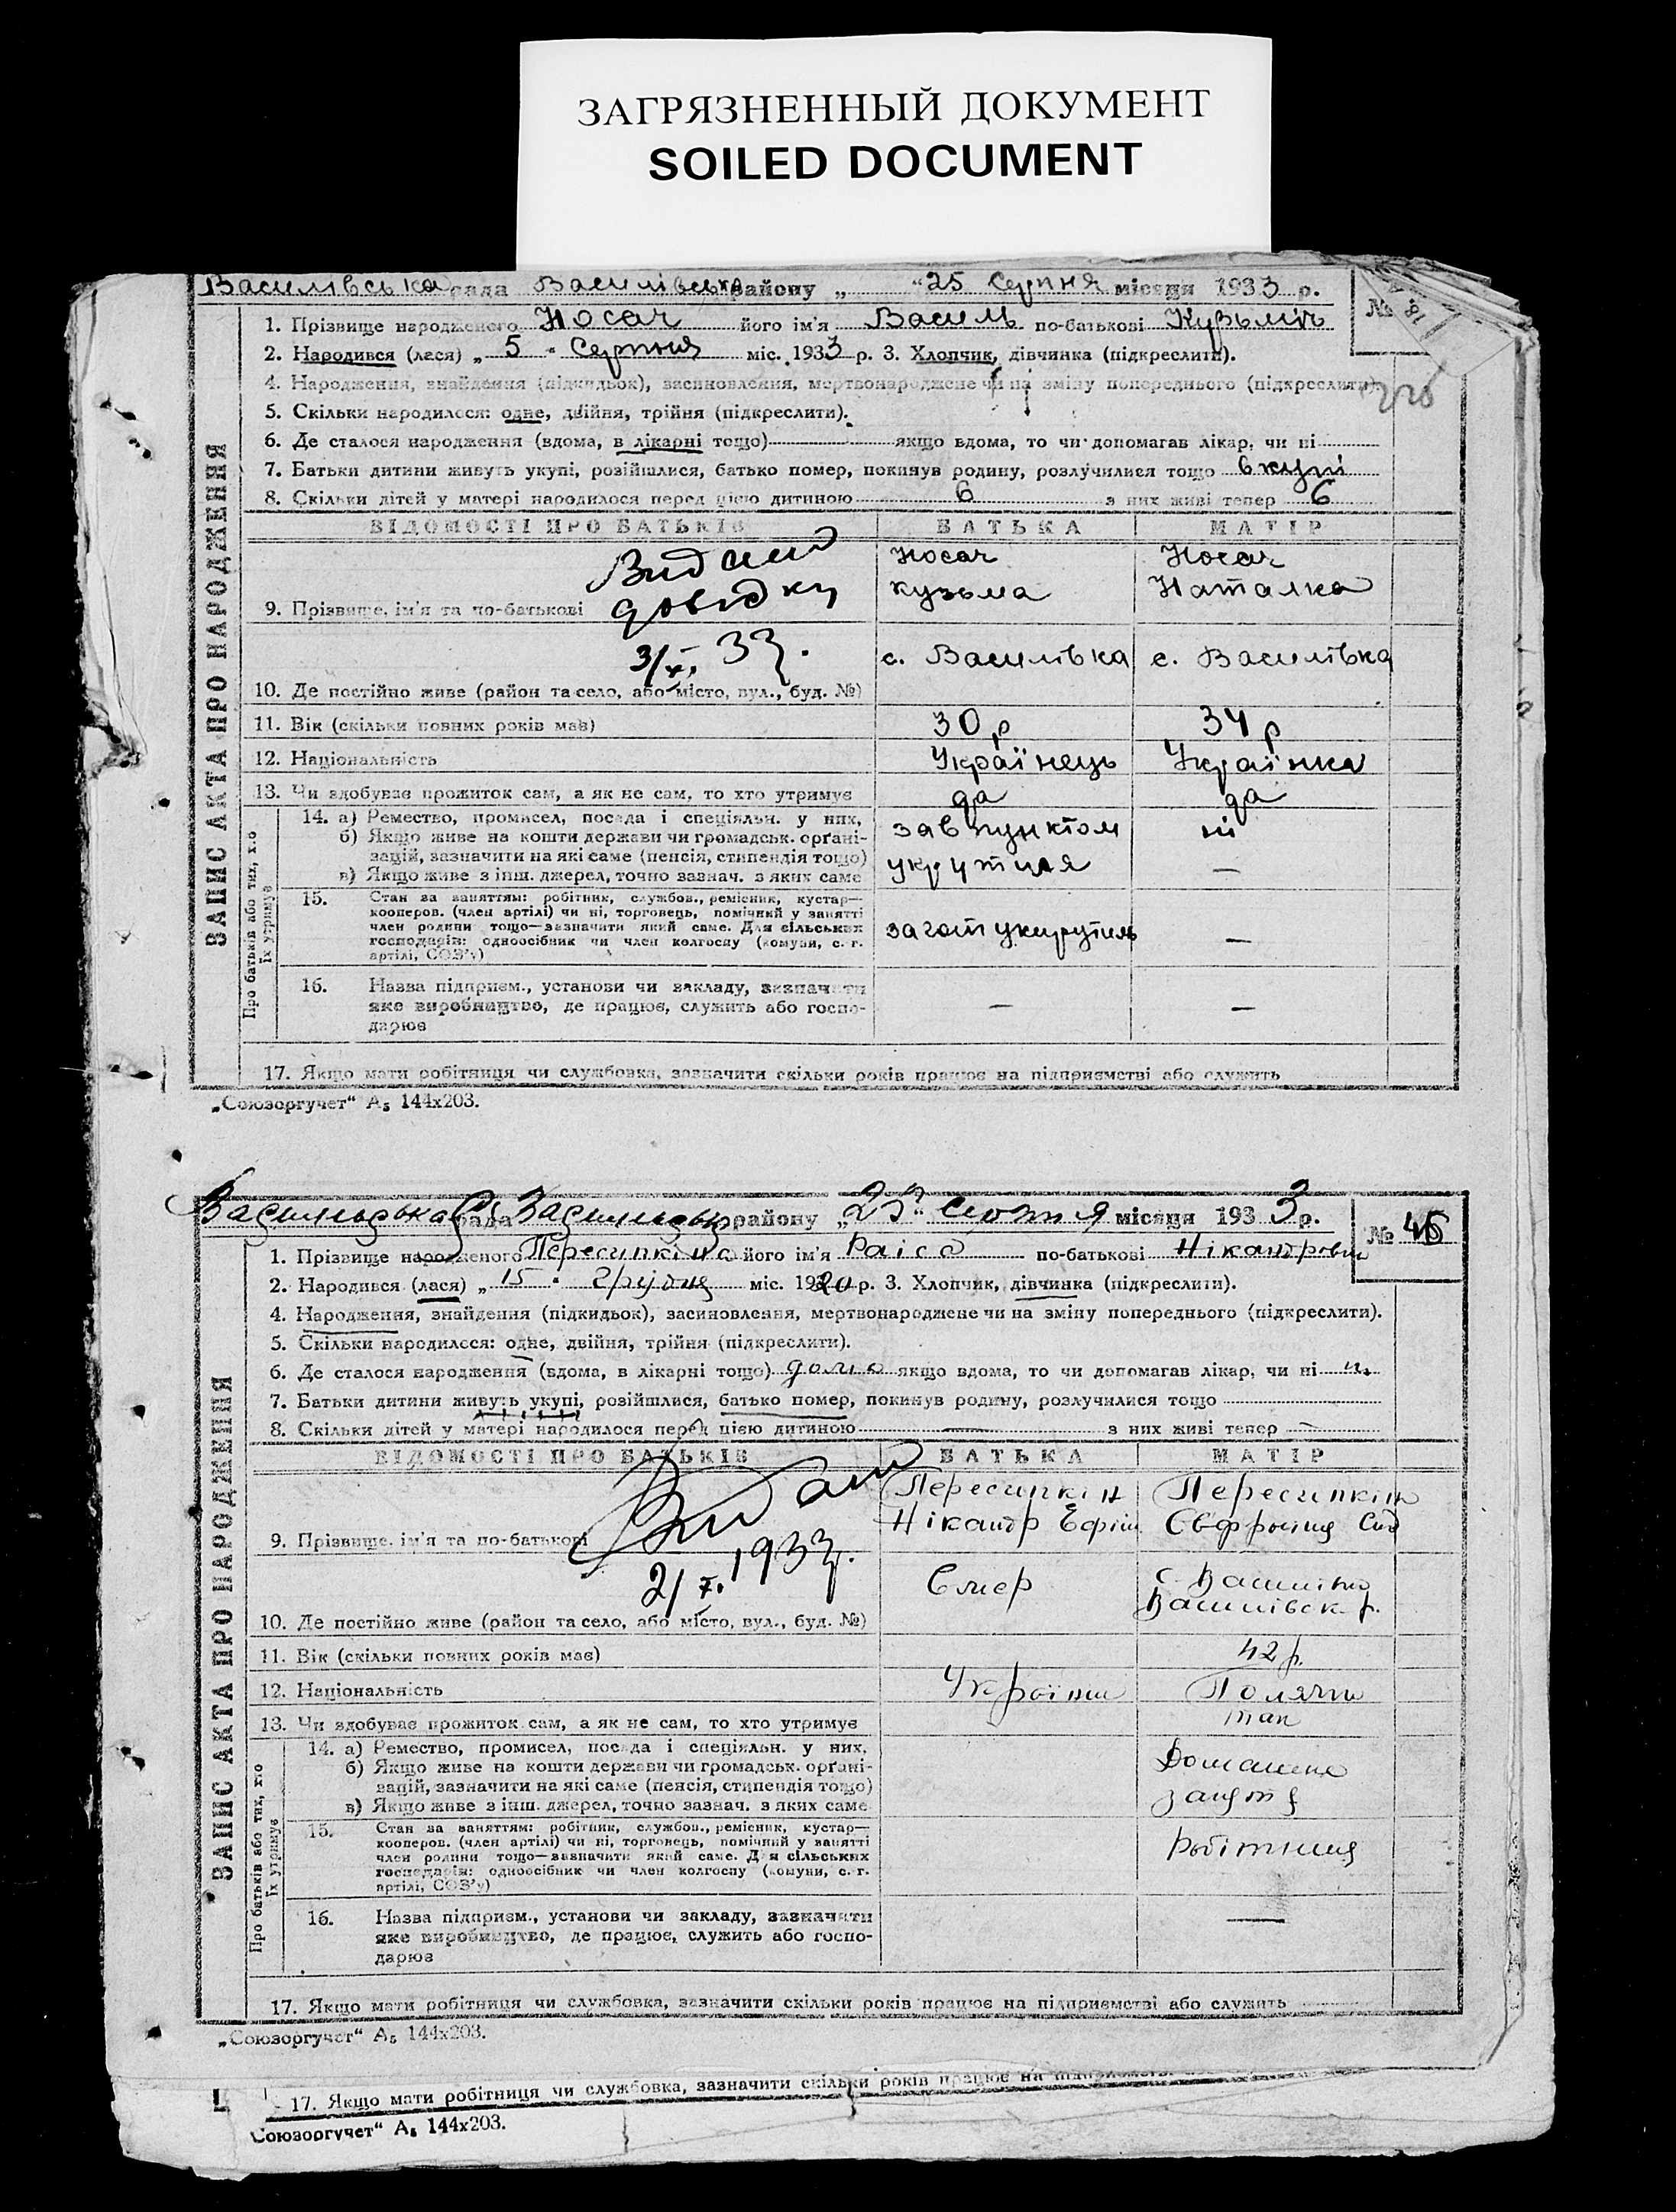 ЗАГРЯЗНЕННЫЙ ДОКУМЕНТ
SOILED DOCUMENT
Василівська рада Василівська району „ “ 25 Серпня місяця 1933 р.
№
ЗАПИС АКТА ПРО НАРОДЖЕННЯ
1. Прізвище народженого Носач його ім'я Василь по-батькові Кузьміч
2. Народився (лася) „ 5 “ Серпня міс. 1933 р. 3. Хлопчик, дівчинка (підкреслити).
4. Народження, знайдення (підкидьок), засиновлення, мертвонароджене чи на зміну попереднього (підкреслити).
5. Скільки народилося: одне, двійня, трійня (підкреслити).
6. Де сталося народження (вдома, в лікарні тощо) якщо вдома, то чи допомагав лікар, чи ні
7. Батьки дитини живуть укупі, розійшлися, батько помер, покинув родину, розлучилися тощо вкупі
8. Скільки дітей у матері народилося перед цією дитиною 6 з них живі тепер 6
ВІДОМОСТІ ПРО БАТЬКІВ БАТЬКА МАТІР
Видано довідку
3/X. 33.
9. Прізвище, ім'я та по-батькові Носач Кузьма Носач Наталка
10. Де постійно живе (район та село, або місто, вул., буд. №) с. Василівка с. Василівка
11. Вік (скільки повних років має) 30 р 34 р
12. Національність Українець Українка
13. Чи здобуває прожиток сам, а як не сам, то хто утримує да да
Про батьків або тих, хто їх утримує
14. а) Ремество, промисел, посада і спеціяльн. у них, зав пунктом ні
б) Якщо живе на кошти держави чи громадськ. орґані-
зацій, зазначити на які саме (пенсія, стипендія тощо)
в) Якщо живе з інш. джерел, точно зазнач. з яких саме —
15. Стан за заняттям: робітник, службов., ремісник, кустар—
кооперов. (член артілі) чи ні, торговець, помічний у занятті
член родини тощо—зазначити який саме. Для сільських
господарів: одноосібник чи член колгоспу (комуни, с.-г.
артілі, СОЗ'у) —
16. Назва підприєм., установи чи закладу, зазначити
яке виробництво, де працює, служить або госпо-
дарює — —
17. Якщо мати робітниця чи службовка, зазначити скільки років працює на підприємстві або служить
„Союзоргучет“ А₅ 144х203.
рада району „ 23 “ місяця 1933 р.
№ 45
ЗАПИС АКТА ПРО НАРОДЖЕННЯ
1. Прізвище народженого Пересипкіна його ім'я Раіса по-батькові Нікандровна
2. Народився (лася) „ 15 “ Грудня міс. 1920 р. 3. Хлопчик, дівчинка (підкреслити).
4. Народження, знайдення (підкидьок), засиновлення, мертвонароджене чи на зміну попереднього (підкреслити).
5. Скільки народилося: одне, двійня, трійня (підкреслити).
6. Де сталося народження (вдома, в лікарні тощо) дома якщо вдома, то чи допомагав лікар, чи ні
7. Батьки дитини живуть укупі, розійшлися, батько помер, покинув родину, розлучилися тощо
8. Скільки дітей у матері народилося перед цією дитиною — з них живі тепер —
ВІДОМОСТІ ПРО БАТЬКІВ БАТЬКА МАТІР
Видано
2/X. 1933р.
9. Прізвище, ім'я та по-батькові Пересипкін Нікандр Ефім Пересипкін
10. Де постійно живе (район та село, або місто, вул., буд. №) Смер с. Василівка Василівськ. р.
11. Вік (скільки повних років має) 42 р.
12. Національність
13. Чи здобуває прожиток сам, а як не сам, то хто утримує так
Про батьків або тих, хто їх утримує
14. а) Ремество, промисел, посада і спеціяльн. у них,
б) Якщо живе на кошти держави чи громадськ. орґані-
зацій, зазначити на які саме (пенсія, стипендія тощо)
в) Якщо живе з інш. джерел, точно зазнач. з яких саме
15. Стан за заняттям: робітник, службов., ремісник, кустар—
кооперов. (член артілі) чи ні, торговець, помічний у занятті
член родини тощо—зазначити який саме. Для сільських
господарів: одноосібник чи член колгоспу (комуни, с.-г.
артілі, СОЗ'у) Робітниця
16. Назва підприєм., установи чи закладу, зазначити
яке виробництво, де працює, служить або госпо-
дарює —
17. Якщо мати робітниця чи службовка, зазначити скільки років працює на підприємстві або служить
„Союзоргучет“ А₅ 144х203.
17. Якщо мати робітниця чи службовка, зазначити скільки років працює на
Союзоргучет“ А₅ 144х203.